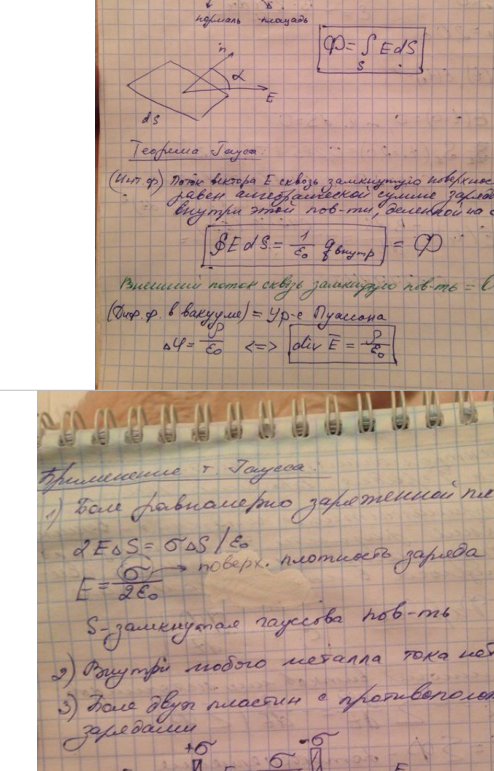 нормаль площадь
Ф = ∫ E dS
S
n
α
E
dS
Теорема Гаусса.
(Инт. ф) Поток вектора E сквозь замкнутую поверхнос
равен алгебраической сумме заряд
внутри этой пов-ти, деленной на
∮EdS = 1/ε₀ q внутр = Ф
Внешний поток сквозь замкнутую пов-ть =
(Диф. ф. в вакууме) = Ур-е Пуассона
Δφ = ρ/ε₀ <=> div E̅ = ρ/ε₀
Применение т. Гаусса.
1) Поле равномерно заряженной пл
2EΔS = σΔS/ε₀
E = σ/2ε₀ → поверх. плотность заряда
S - замкнутая гауссова пов-ть
2) Внутри любого металла тока нет
3) Поле двух пластин с противополо
зарядами
+σ -σ
σ
E